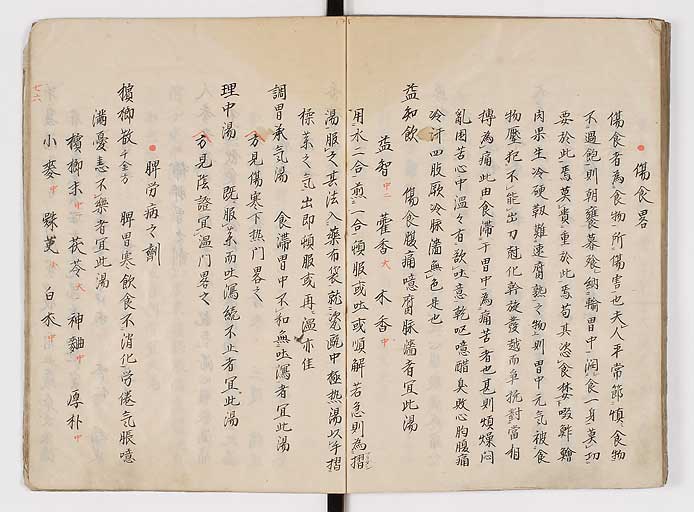 傷食畧
傷食者為食物所傷害也夫人平常節慎食物
不過飽則朝饔暮飧納輸胃中潤食一身莫切
要於此焉莫貴重於此焉苟其恣食婪啜鮓鱠
肉果生冷硬難速腐熟之物則胃中元气被食
物壓扼不能出力尅化幹旋發越而阜抗對當相
搏為痛此由食滞于胃中為痛苦者也甚則煩燥悶
乱困苦心中温々有欲吐意乾呕噫醋臭敗心胸腹痛
冷汗四肢厥冷脉濇無色是也
益知飲 傷食腹痛噫腐脉濇者宜此湯
益智中二 藿香大 木香中
用水二合煎一合頓服或吐或順解若急則為摺
湯服之其法入藥布袋就瓷甌中極热湯以手摺
揉藥之气出即頓服或再温亦佳
調胃承气湯 食滞胃中不和無吐瀉者宜此湯
方見傷寒下热门畧之
理中湯 既服藥而吐瀉続不止者宜此湯
方見陰證宜温门畧之
脾労病之劑
檳榔散千金方 脾胃寒飲食不消化労倦气脹噫
満憂恚不樂者宜此湯
檳榔末中 茯苓大 神麯中 厚朴中
小麥中 白朮中
七六